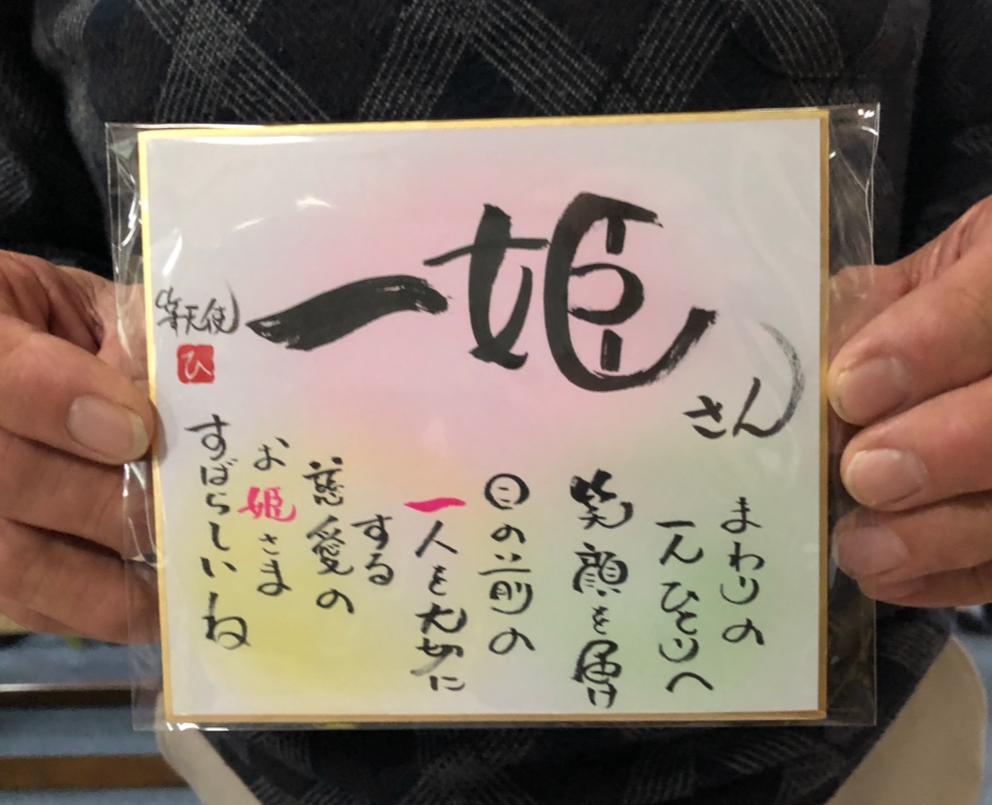 一姫
さん
まわりの
一人ひとりへ
笑顔を届け
目の前の
一人を大切に
する
慈愛の
お姫さま
すばらしいね
天使
ひ